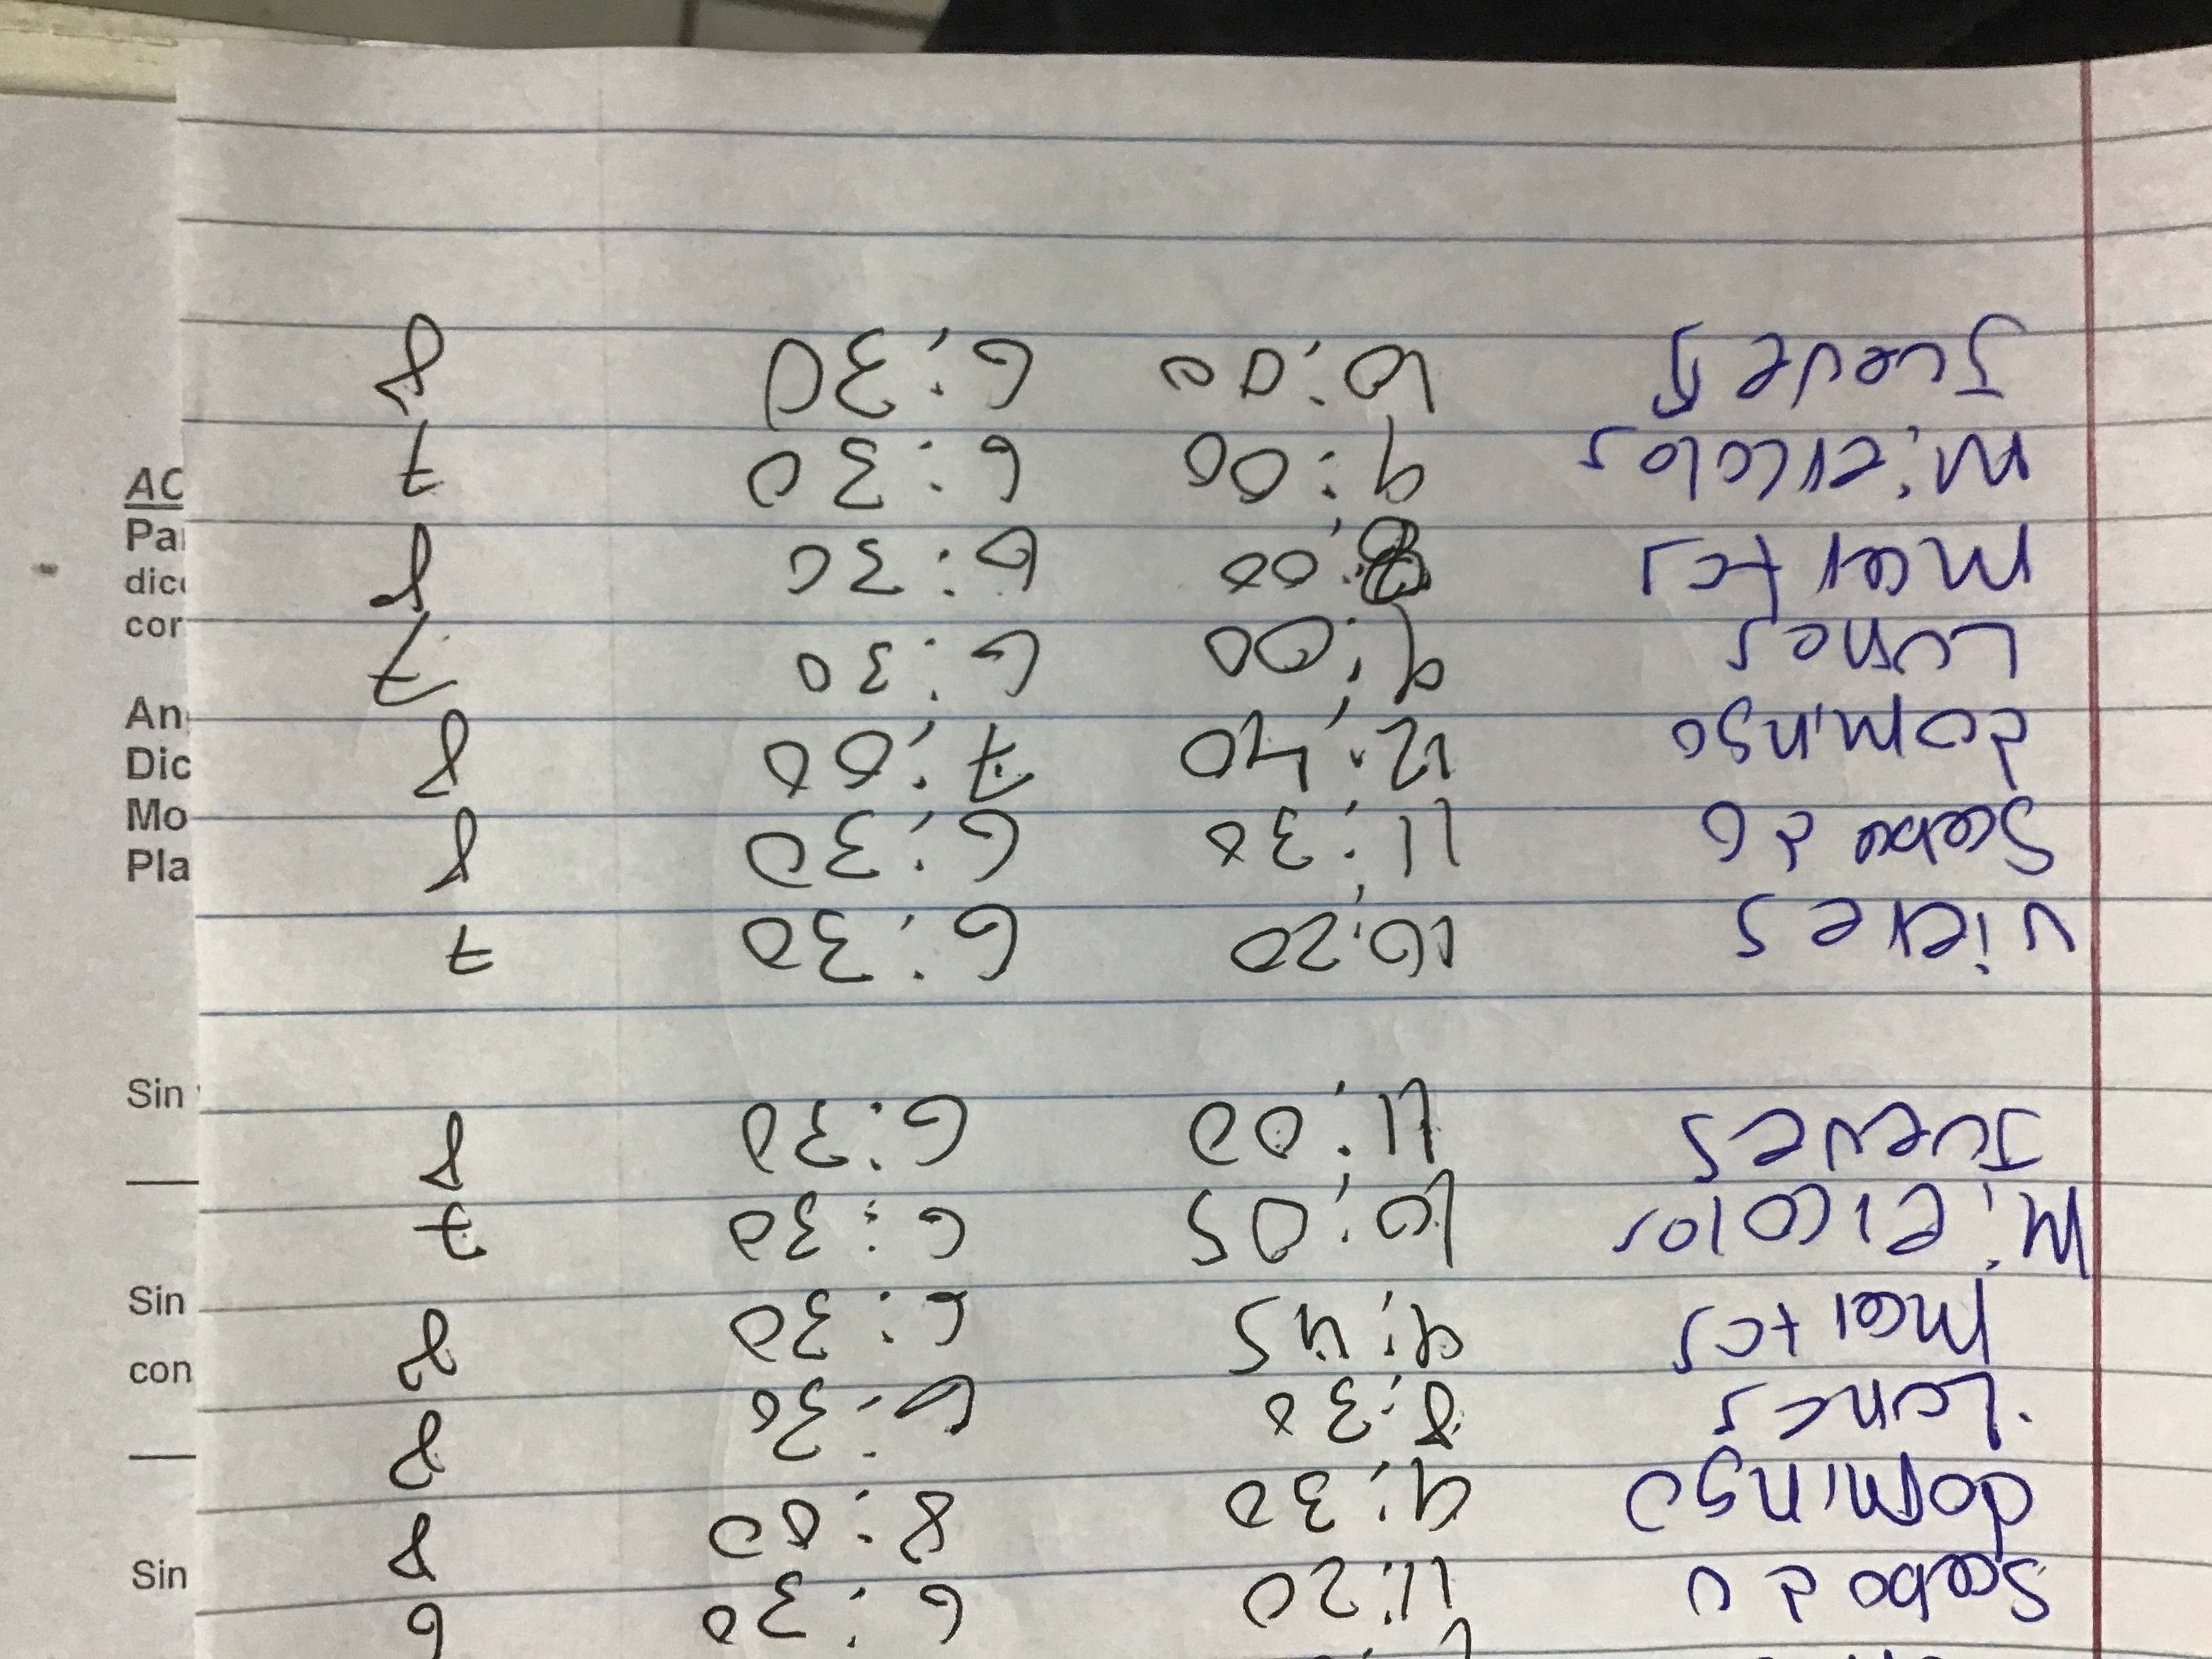 Sabado 11:20 6:30 6
domingo 9:30 8:00 8
Lunes 8:30 6:30 8
Martes 9:45 6:30 8
Miercolos 10:05 6:30 7
Jueves 11:00 6:30 8
vieres 10:20 6:30 7
Sabado 11:30 6:30 8
domingo 12:40 7:00 8
Lunes 9:00 6:30 7
Martes 8:00 6:30 8
Miercolos 9:00 6:30 7
Jueves 10:00 6:30 8
AC
Pa
dic
cor
An
Dic
Mo
Pla
Sin
Sin
con
Sin